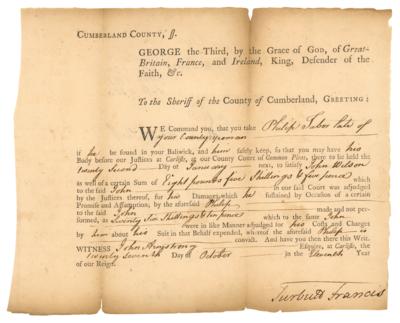 CUMBERLAND COUNTY, ss.
GEORGE the Third, by the Grace of GOD, of Great-
Britain, France, and Ireland, King, Defender of the
Faith, &c.
To the Sheriff of the County of Cumberland, GREETING:
WE Command you, that you take Philip Tabor late of
your County yeoman
if he be found in your Bailiwick, and him safely keep, so that you may have his
Body before our Justices at Carlisle, at our County Court of Common Pleas, there to be held the
twenty Second Day of January next, to satisfy John Wilson
as well of a certain Sum of Eight pounds five Shillings & four pence which
to the said John in our said Court was adjudged
by the Justices thereof, for his Damages, which he sustained by Occasion of a certain
Promise and Assumption, by the aforesaid Philip
to the said John made and not per-
formed, as Shillings & ten pence which to the same John
were in like Manner adjudged for his Costs and Charges
by him about his Suit in that Behalf expended, whereof the aforesaid Philip is
convict. And have you then there this Writ.
WITNESS John Armstrong Esquire, at Carlisle, the
twenty Seventh Day of October in the Eleventh Year
of our Reign.
Turbutt Francis